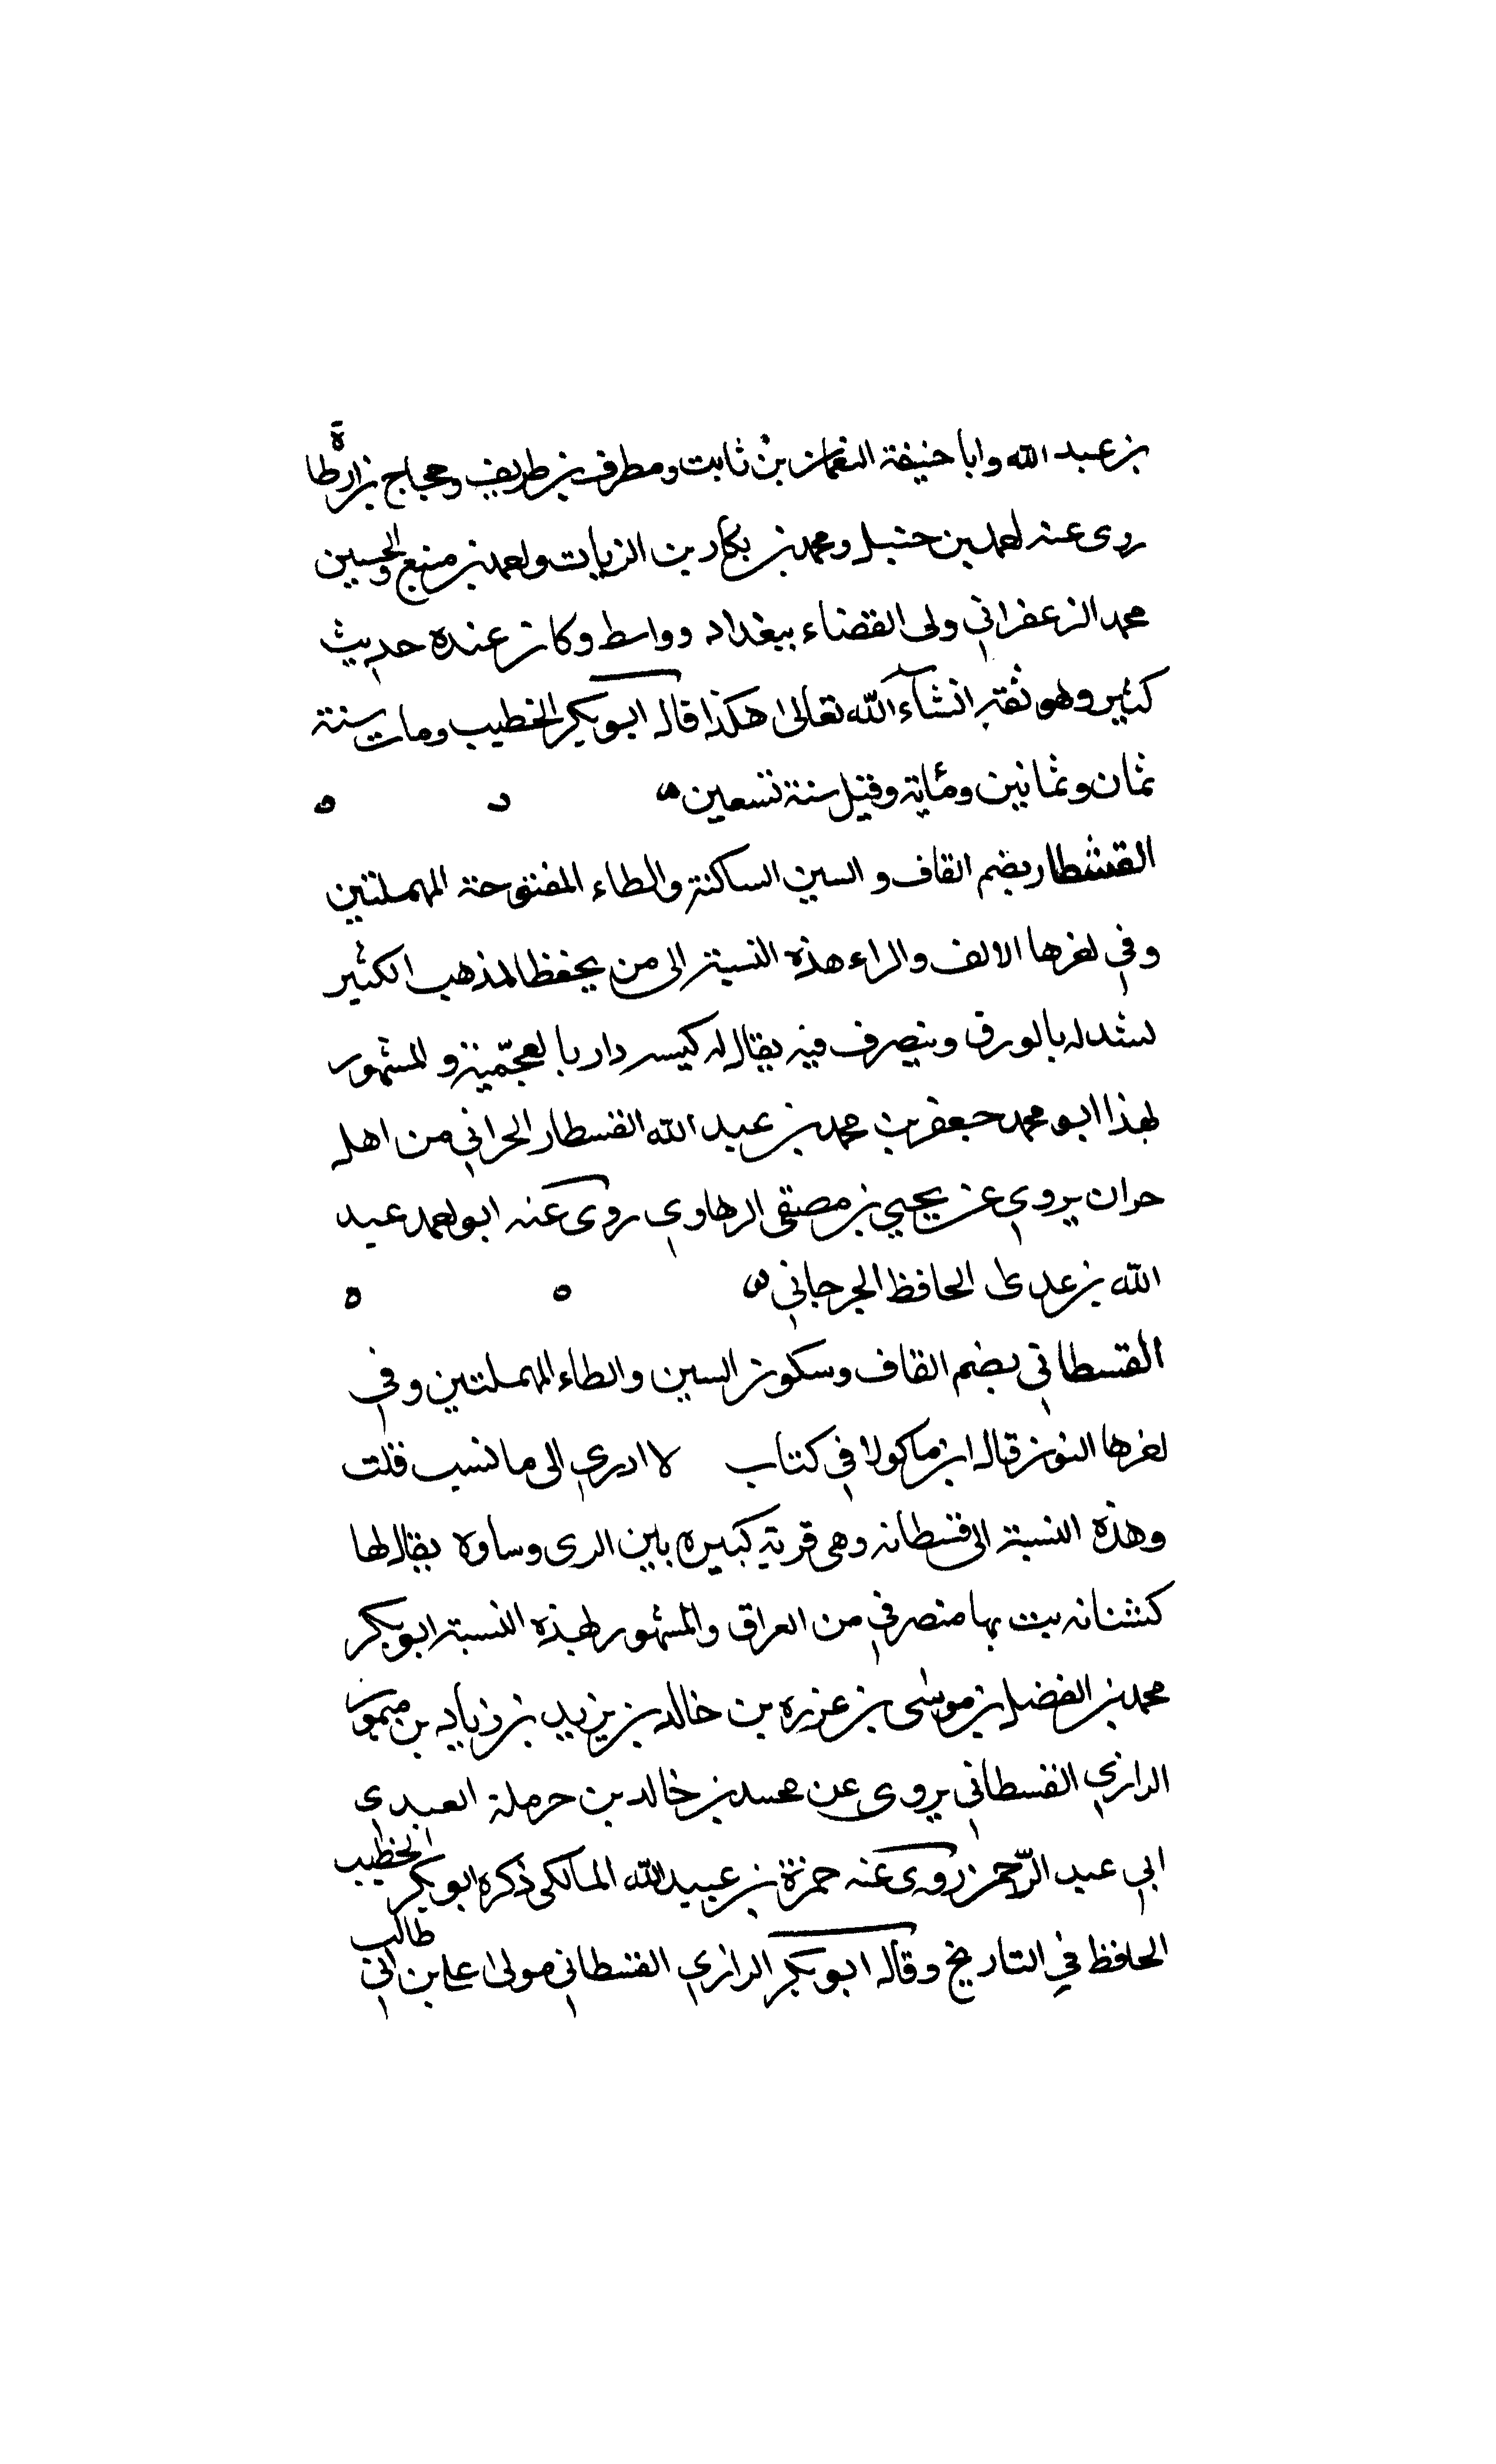 بن عبد الله وابا حنيفة النعمان بن ثابت ومطرف بن طريف وحجاج بن ارطاة
روى عنه احمد بن حنبل ومحمد بن بكار بن الزيات واحمد بن منيع والحسين
محمد الزعفراني ولى القضاء ببغداد وواسط وكان عنده حديث
كثير وهو ثقة انشآء الله تعالى هكذا قال ابو بكر الخطيب ومات سنة
ثمان وثمانين ومئاية وقيل سنة تسعين
القشطار بضم القاف والسين الساكنة والطاء المفتوحة المهملتين
وفي اخرها الالف والراء هذه النسبة الى من يحفظ المذهب الكثير
لسدله بالورق ويتصرف فيه يقال له كيسردار بالعجمّية والمشهور
بهذا ابو محمد جعفر بن محمد بن عبد الله القسطار الحراني من اهل
حران يروي عن يحيي بن مصقى الرهاوي روى عنه ابو احمد عبد
الله بن عدى الحافظ الجرجاني
القسطاني بضم القاف وسكون السين والطاء المهملتين وفي
اخرها النون قال ابن ماكولا في كتاب لا ادري الى ما نسب قلت
وهذه النسبة الى قسطانه وهى قرية كبيره بين الرى وساوه يقال لها
كشتانه بت بها منصرفي من العراق والمشهور بهذه النسبة ابو بكر
محمد بن الفضل بن موسى بن عزره بن خالد بن يزيد بن زياد بن ميمون
الرازي القسطاني يروى عن محمد بن خالد بن حرملة العبدي
ابي عبد الرّحمن روى عنه حمزة بن عبيد الله المالكى ذكره ابو بكر الخطيب
الحافظ في التاريخ وقال ابو بكر الرازي القسطاني مولى على بن ابي طالب